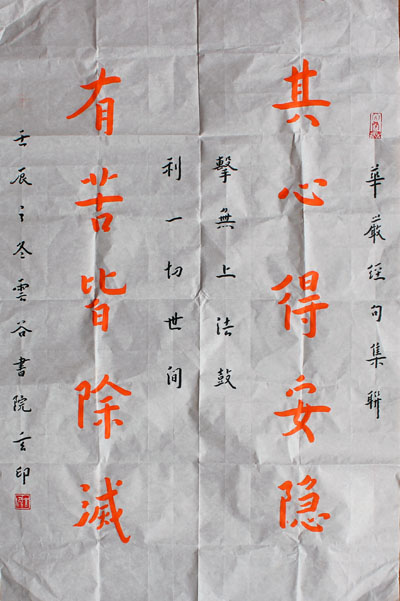 華嚴經句集聯
其心得安隐
擊無上法鼓
利一切世间
有苦皆除滅
壬辰之冬雲谷書院玄印